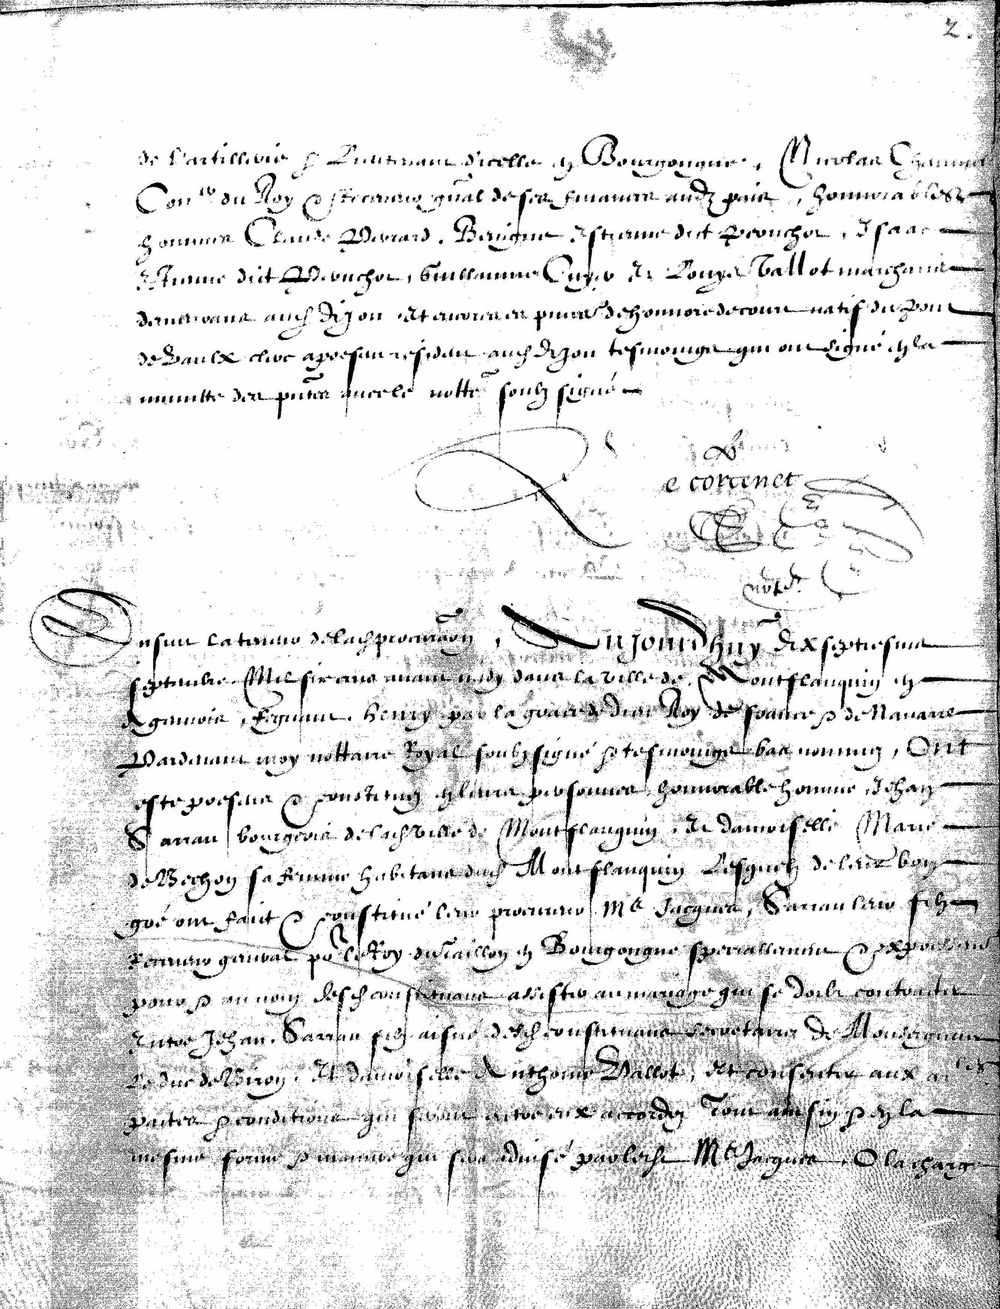 2.
de l'artillerie & Lieutenant d'icelle en Bourgongne, Nicolas
Con.er du Roy & secretaire gnal de ses finances audz pais, honnorables
hommes Claude Perrard, Benigne Estienne dict Perichot, Isaac
Estienne dict Perichot, Guillaume et Vallot marchans
demeurans aud Dijon et encores en pnce de honnore natif du
de Vaulx resident aud Dijon tesmoings qui ont signé en la
minutte des pntes avec le nottre soubz signé
e corcenet
notre
Ensuit la teneur de lad procura͠on, Aujourdhuy dix septiesme
septembre Mil six cens avant midy dans la ville de Montflanquin en
Agenois, Regnant Henry par la grace de dieu Roy de france & de Navarre
Pardevant moy nottaire Royal soubz signé & tesmoings bas nommez, Ont
esté presens & constituez en leurs personnes honnorable homme Jehan
Sarrau bourgeois de lad Ville de Montflanquin, et damoiselle Marie
de Bechon sa femme habitans dud Montflanquin Lesquelz de leur bon
gré ont faict & constitué leur procureur Me Jacques Sarrau leur filz
Receveur general por le Roy du Taillon en Bourgongne speciallement & expressement
pour & au nom desd constituans assister au mariage qui se doibt contracter
Entre Jehan Sarrau filz aisné desd constituans secretaire de Monseigneur
Le duc de Biron, Et damoiselle Anthoine Vallot, et consentir aux
pactes & conditions qui seront entre eux accordez Tout ainsin & en la
mesme forme & maniere qui sera advisé par led Me Jacques, O la charge